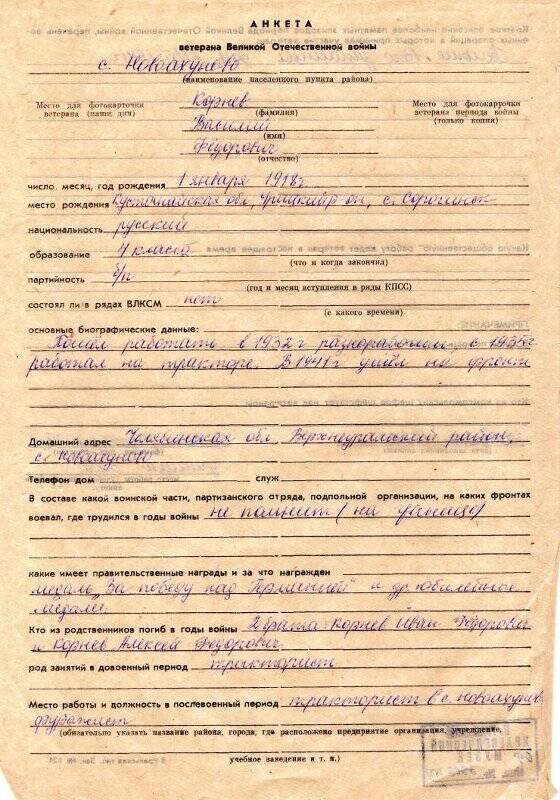 АНКЕТА
ветерана Великой Отечественной войны
с. Новоахуново
(наименование населенного пункта района)
Место для фотокарточки
ветерана (наши дни)
Корнев
(фамилия)
Василий
(имя)
Федорович
(отчество)
Место для фотокарточки
ветерана периода войны
(только копия)
число, месяц, год рождения 1 января 1918 г
место рождения Кустанайская обл, Урицкий р-он, с.
национальность русский
образование 4 класса
(что и когда закончил)
партийность б/п
(год и месяц вступления в ряды КПСС)
состоял ли в рядах ВЛКСМ нет
(с какого времени)
основные биографические данные:
Пошел работать в 1932 г разнорабочим, с 1935 г
работал на тракторе. В 1941 г ушёл на фронт
Домашний адрес Челябинская обл, Верхнеуральский район,
с. Новоахуново
Телефон дом служ
В составе какой воинской части, партизанского отряда, подпольной организации, на каких фронтах
воевал, где трудился в годы войны не помнит (на
какие имеет правительственные награды и за что награжден
медаль "За победу над Германией" и др юбилейные
медали
Кто из родственников погиб в годы войны 2 брата: Корнев Иван Федорович
и Корнев Алексей Федорович
род занятий в довоенный период тракторист
Место работы и должность в послевоенный период тракторист в с. Новоахуново
фуражист
(обязательно указать название района, города, где расположено предприятие организация, учреждение,
учебное заведение и т. п.)